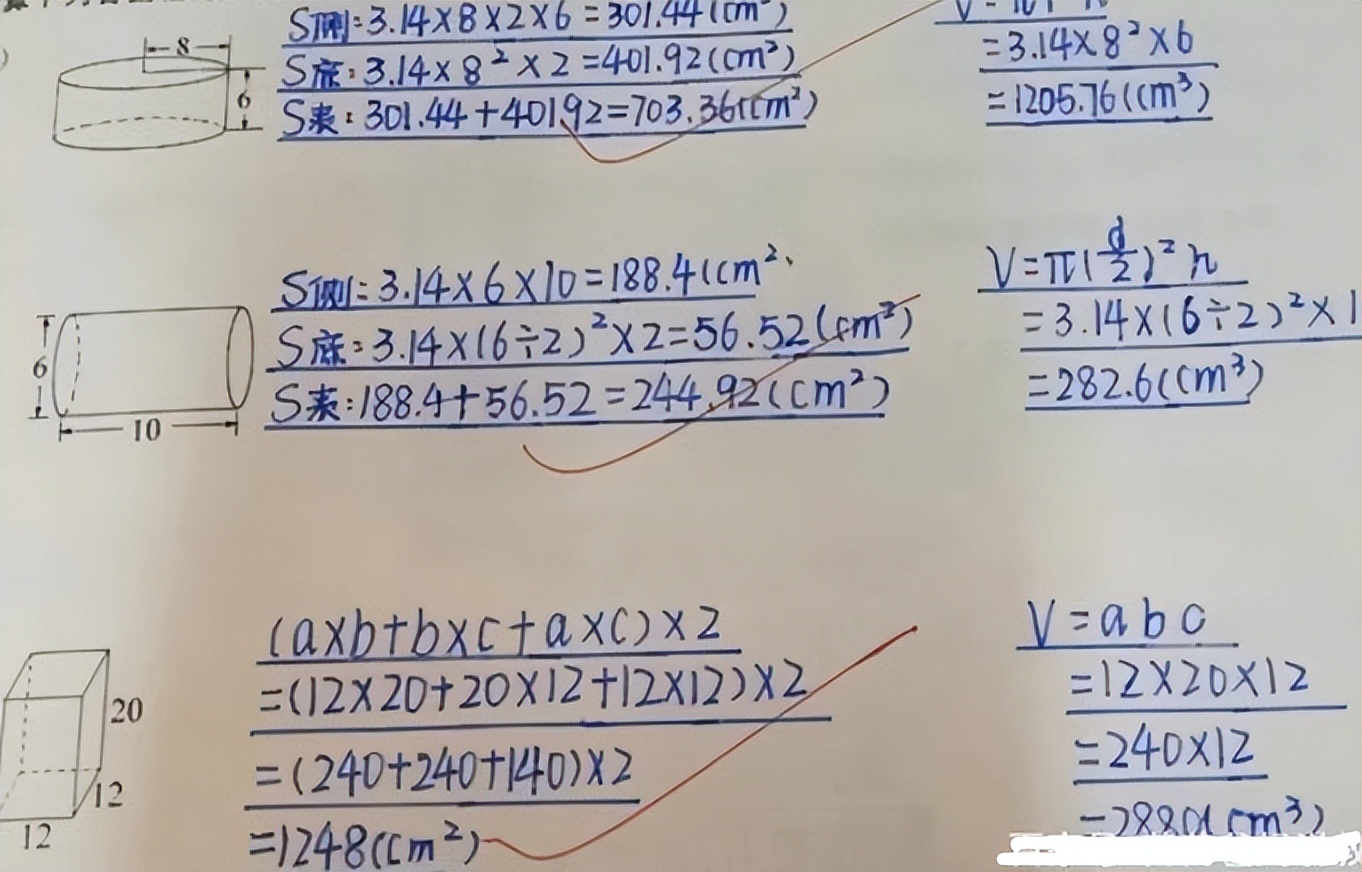 8
6
S侧:3.14×8×2×6=301.44(cm²)
S底:3.14×8²×2=401.92(cm²)
S表:301.44+401.92=703.36(cm²)
=3.14×8²×6
=1205.76(cm³)
6
10
S侧:3.14×6×10=188.4(cm²
S底:3.14×(6÷2)²×2=56.52(cm²)
S表:188.4+56.52=244.92(cm²)
V=π(d/2)²h
=3.14×(6÷2)²×1
=282.6(cm³)
20
12
12
(a×b+b×c+a×c)×2
=(12×20+20×12+12×12)×2
=(240+240+140)×2
=1248(cm²)
V=abc
=12×20×12
=240×12
=2880(cm³)